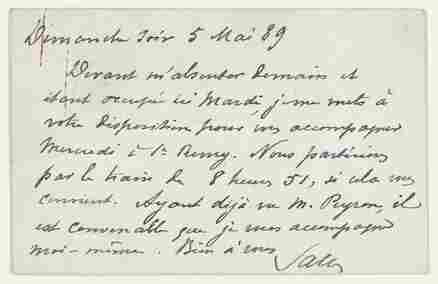 Dimanche soir 5 Mai 89
Devant m'absenter demain et
étant occupé ici Mardi, je me mets à
votre disposition pour vous accompagner
Mercredi à St Remy. Nous partirions
par le train de 8 heures 51, si cela vous
convient. Ayant déjà vu M. Peyron, il
est convenable que je vous accompagne
moi-même. Bien à vous
Salles